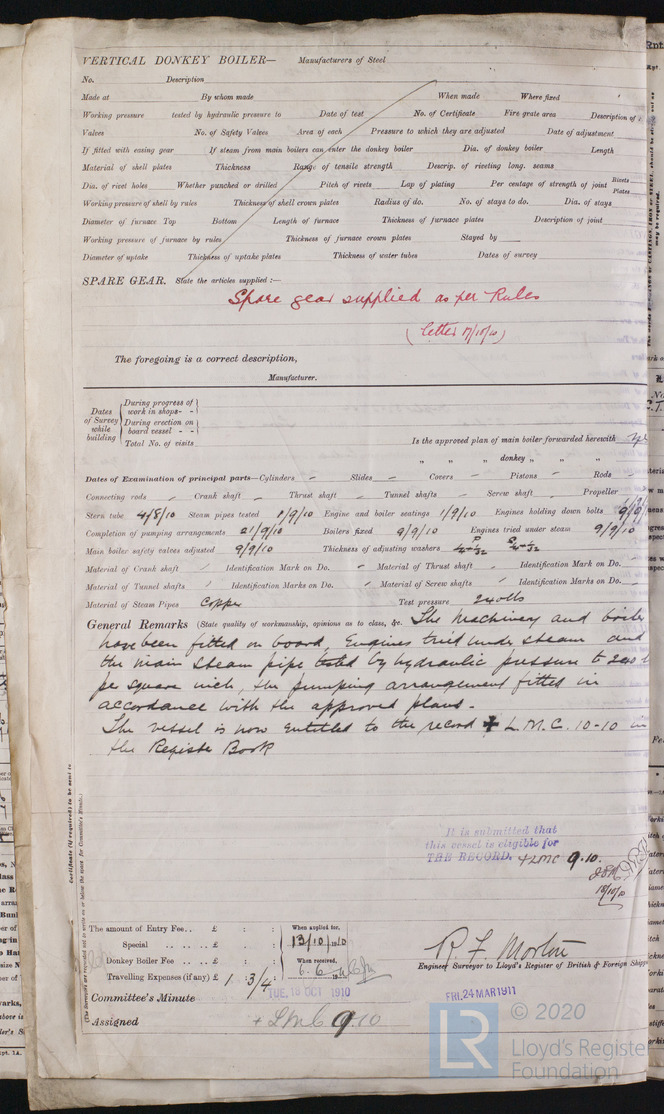 VERTICAL DONKEY BOILER— Manufacturers of Steel
No. Description
Made at By whom made When made Where fixed
Working pressure tested by hydraulic pressure to Date of test No. of Certificate Fire grate area Description of
Valves No. of Safety Valves Area of each Pressure to which they are adjusted Date of adjustment
If fitted with easing gear If steam from main boilers can enter the donkey boiler Dia. of donkey boiler Length
Material of shell plates Thickness Range of tensile strength Descrip. of riveting long. seams
Dia. of rivet holes Whether punched or drilled Pitch of rivets Lap of plating Per centage of strength of joint Rivets Plates
Working pressure of shell by rules Thickness of shell crown plates Radius of do. No. of stays to do. Dia. of stays
Diameter of furnace Top Bottom Length of furnace Thickness of furnace plates Description of joint
Working pressure of furnace by rules Thickness of furnace crown plates Stayed by
Diameter of uptake Thickness of uptake plates Thickness of water tubes Dates of survey
SPARE GEAR. State the articles supplied :—
Spare gear supplied as per Rules
(letter 17/10/10)
The foregoing is a correct description,
Manufacturer.
Dates of Survey while building
During progress of work in shops - -
During erection on board vessel - -
Total No. of visits
Is the approved plan of main boiler forwarded herewith
" " " donkey " " "
Dates of Examination of principal parts—Cylinders Slides Covers Pistons Rods
Connecting rods Crank shaft Thrust shaft Tunnel shafts Screw shaft Propeller
Stern tube 4/8/10 Steam pipes tested 1/9/10 Engine and boiler seatings 1/9/10 Engines holding down bolts
Completion of pumping arrangements 21/9/10 Boilers fixed 9/9/10 Engines tried under steam 9/9/10
Main boiler safety valves adjusted 9/9/10 Thickness of adjusting washers
Material of Crank shaft Identification Mark on Do. Material of Thrust shaft Identification Mark on Do.
Material of Tunnel shafts Identification Marks on Do. Material of Screw shafts Identification Marks on Do.
Material of Steam Pipes Copper Test pressure 240 lbs
General Remarks (State quality of workmanship, opinions as to class, &c. The machinery and boiler
have been fitted on board, Engines tried under steam and
the main steam pipe tested by hydraulic pressure to 240
per square inch, the pumping arrangement fitted in
accordance with the approved plans.
The vessel is now entitled to the record + L.M.C. 10-10 in
the Register Book
It is submitted that
this vessel is eligible for
THE RECORD. + LMC 9.10.
18/10/10
The amount of Entry Fee.. £ : : When applied for,
Special .. .. .. .. £ : : 13/10/1910
Donkey Boiler Fee .. .. £ : : When received,
Travelling Expenses (if any) £ 1 : 3/4 :
R. F. Morton
Engineer Surveyor to Lloyd's Register of British & Foreign Shipp
Committee's Minute TUE. 18 OCT 1910 FRI. 24 MAR 1911
Assigned + LMC 9.10
LR © 2020
Lloyd's Register
Foundation